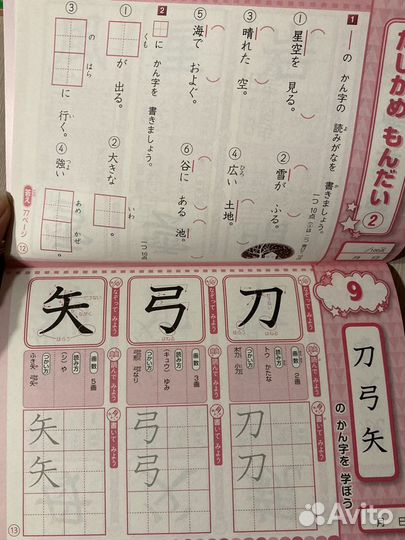 たしかめ もんだい ②
/100点
1 ――の かん字の 読みがなを 書きましょう。
一つ10点
① 星空を 見る。
② 雪が ふる。
③ 晴れた 空。
④ 広い 土地。
ひろ
⑤ 海で およぐ。
⑥ 谷に ある 池。
2 □に かん字を 書きましょう。
一つ10点
① くも が 出る。
② 大きな いわ
③ の はら に 行く。
④ 強い あめ かぜ
つよ
答え 77ページ
12
9
刀 弓 矢
の かん字を 学ぼう
月 日
刀
なぞって みよう
読んで みよう
読み方
トウ かたな
画数
2画
つかい方
書いて みよう
刀
刀
弓
なぞって みよう
はねる
読んで みよう
読み方
(キュウ) ゆみ
画数
3画
つかい方
書いて みよう
弓
弓
矢
なぞって みよう
はらう
読んで みよう
読み方
(シ) や
画数
5画
つかい方
書いて みよう
矢
矢
13
Avito